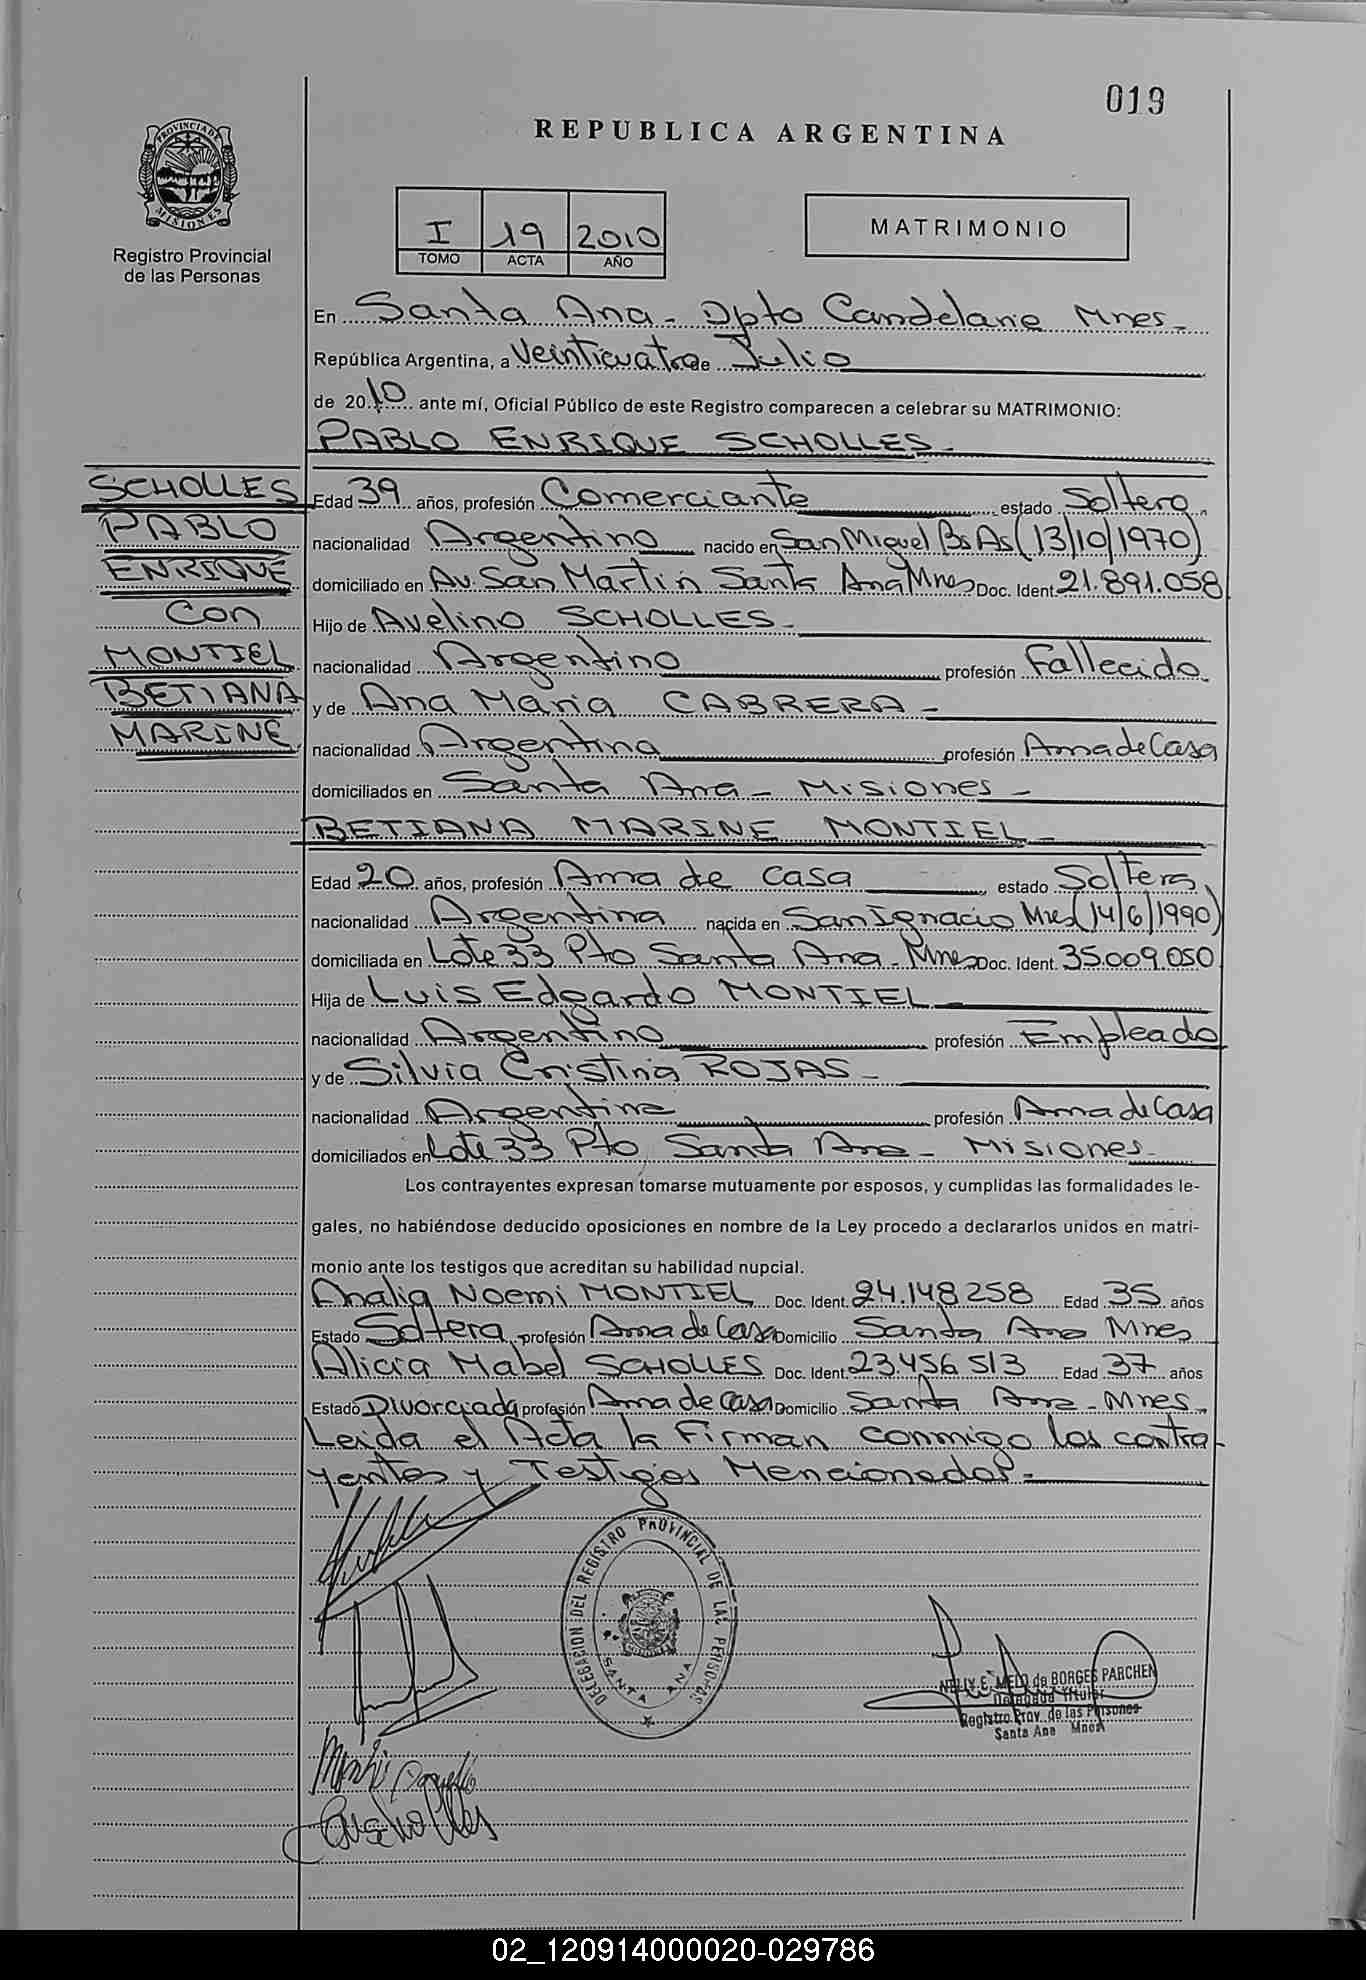 019
REPUBLICA ARGENTINA
PROVINCIA DE MISIONES
Registro Provincial
de las Personas
I 19 2010
TOMO ACTA AÑO
MATRIMONIO
En Santa Ana - Dpto Candelaria Mnes -
República Argentina, a Veinticuatro de Julio
de 2010 ante mí, Oficial Público de este Registro comparecen a celebrar su MATRIMONIO:
PABLO ENRIQUE SCHOLLES -
SCHOLLES
PABLO
ENRIQUE
Con
MONTIEL
BETIANA
MARINE
Edad 39 años, profesión Comerciante estado Soltero
nacionalidad Argentino nacido en San Miguel Bs As (13/10/1970)
domiciliado en Av. San Martín Santa Ana Mnes Doc. Ident. 21.891.058
Hijo de Avelino SCHOLLES -
nacionalidad Argentino profesión Fallecido
y de Ana Maria CABRERA -
nacionalidad Argentina profesión Ama de Casa
domiciliados en Santa Ana - Misiones -
BETIANA MARINE MONTIEL -
Edad 20 años, profesión Ama de casa estado Soltera
nacionalidad Argentina nacida en San Ignacio Mnes (14/6/1990)
domiciliada en Lote 33 Pto Santa Ana - Mnes Doc. Ident. 35.009.050
Hija de Luis Edgardo MONTIEL
nacionalidad Argentino profesión Empleado
y de Silvia Cristina ROJAS -
nacionalidad Argentina profesión Ama de Casa
domiciliados en Lote 33 Pto Santa Ana - Misiones -
Los contrayentes expresan tomarse mutuamente por esposos, y cumplidas las formalidades le-
gales, no habiéndose deducido oposiciones en nombre de la Ley procedo a declararlos unidos en matri-
monio ante los testigos que acreditan su habilidad nupcial.
Analia Noemi MONTIEL Doc. Ident. 24.148258 Edad 35 años
Estado Soltera profesión Ama de Casa Domicilio Santa Ana Mnes
Alicia Mabel SCHOLLES Doc. Ident. 23.456 513 Edad 37 años
Estado Divorciada profesión Ama de Casa Domicilio Santa Ana - Mnes
Leida el Acta la Firman conmigo los contra-
yentes y Testigos Mencionados -
DELEGACION DEL REGISTRO PROVINCIAL DE LAS PERSONAS
SANTA ANA
NELLY E. MELO de BORGES PARCHEN
Delegada Titular
Registro Prov. de las Personas
Santa Ana Mnes
02_120914000020-029786